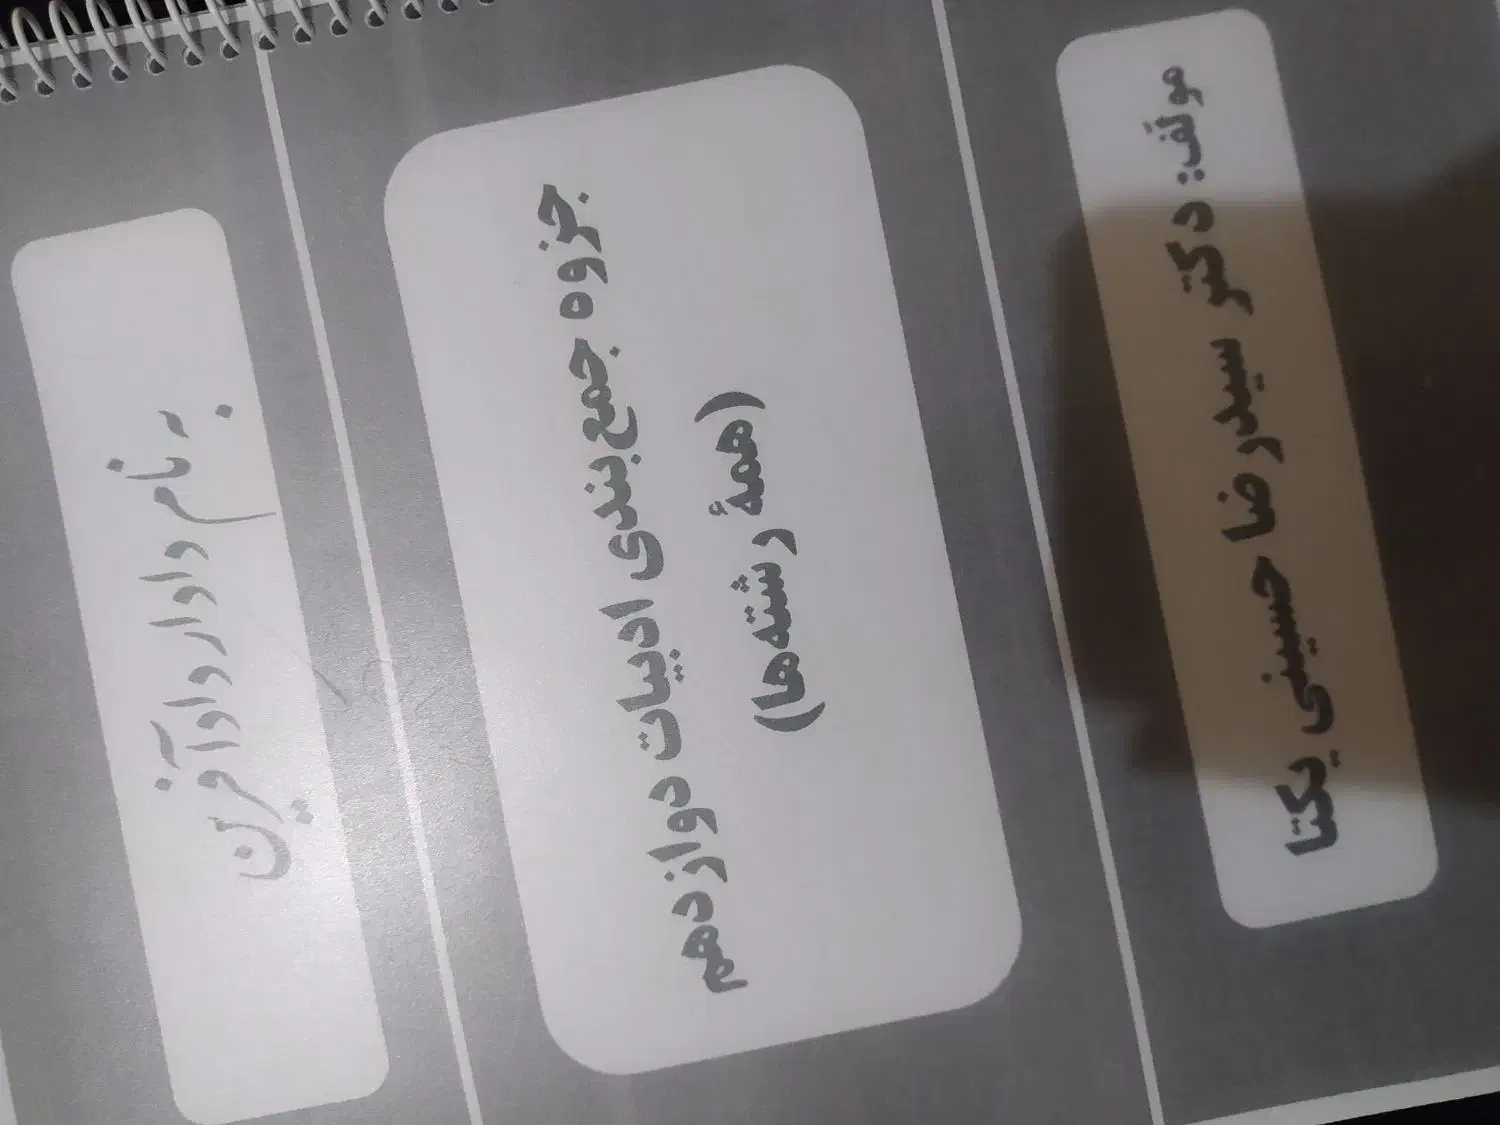 به نام دادار دادآفرین
جزوه جمع‌بندی ادبیات دوازدهم
(همهٔ رشته‌ها)
مولف: دکتر سیدرضا حسینی یکتا